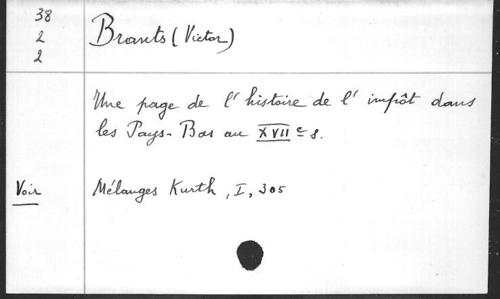 38
2
2
Brants (Victor)
Une page de l' histoire de l' impôt dans
les Pays-Bas au XVII e s.
Voir
Mélanges Kurth, I, 305